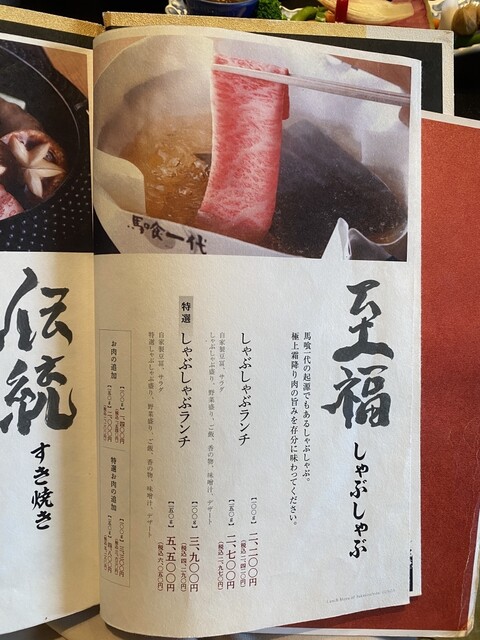 馬喰一代
至福
しゃぶしゃぶ
馬喰一代の起源でもあるしゃぶしゃぶ。
極上霜降り肉の旨みを存分に味わってください。
しゃぶしゃぶランチ
【一〇〇g】 二、二〇〇円
(税込二、四二〇円)
【一五〇g】 二、七〇〇円
(税込二、九七〇円)
自家製豆冨、サラダ
しゃぶしゃぶ盛り、野菜盛り、ご飯、香の物、味噌汁、デザート
特選
しゃぶしゃぶランチ
【一〇〇g】 三、九〇〇円
(税込四、二九〇円)
【一五〇g】 五、五〇〇円
(税込六、〇五〇円)
自家製豆冨、サラダ
特選しゃぶしゃぶ盛り、野菜盛り、ご飯、香の物、味噌汁、デザート
お肉の追加
特選お肉の追加
伝統
すき焼き